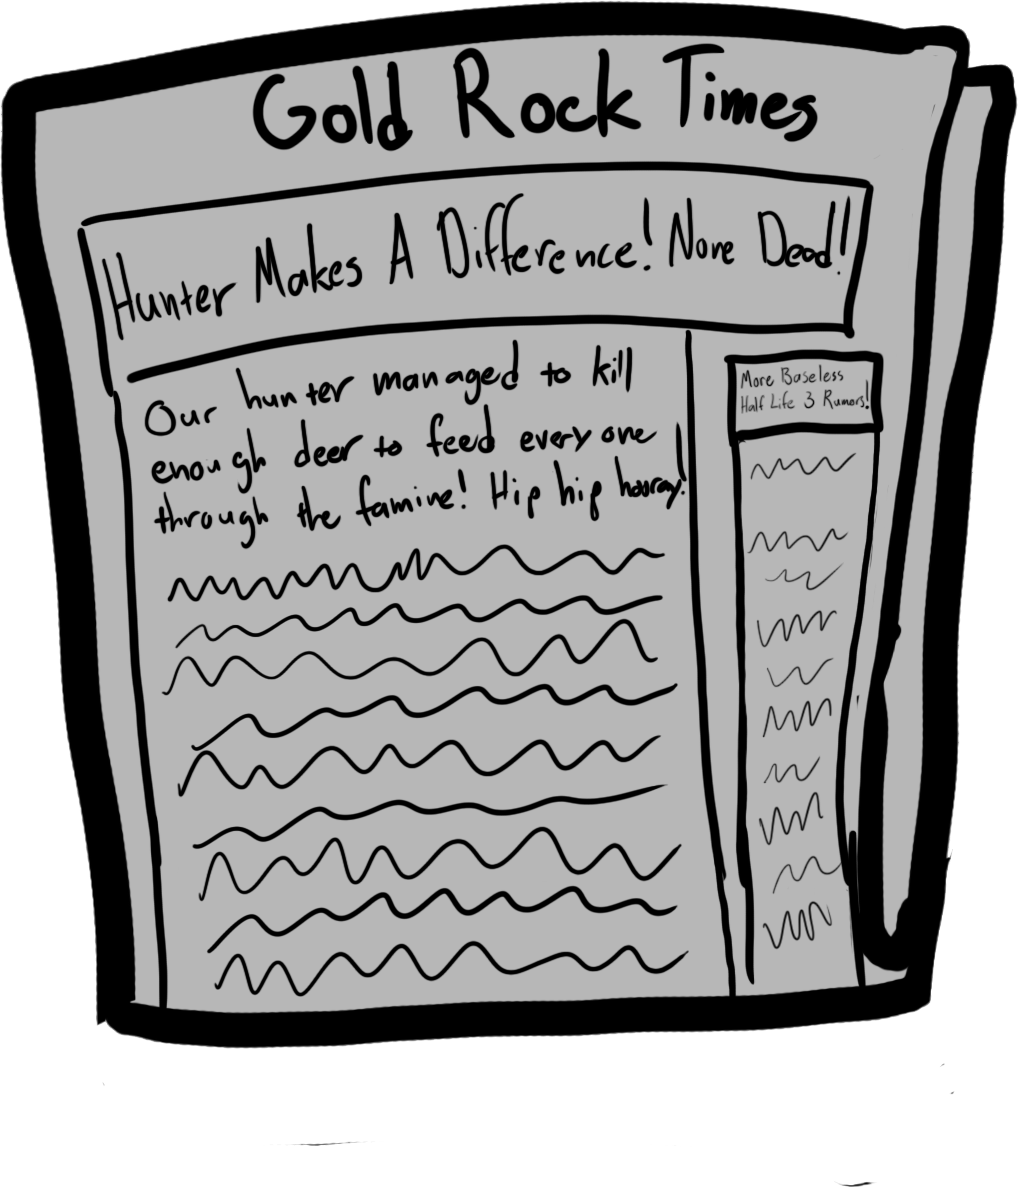 Gold Rock Times
Hunter Makes A Difference! None Dead!
Our hunter managed to kill
enough deer to feed everyone
through the famine! Hip hip hooray!
More Baseless
Half Life 3 Rumors!